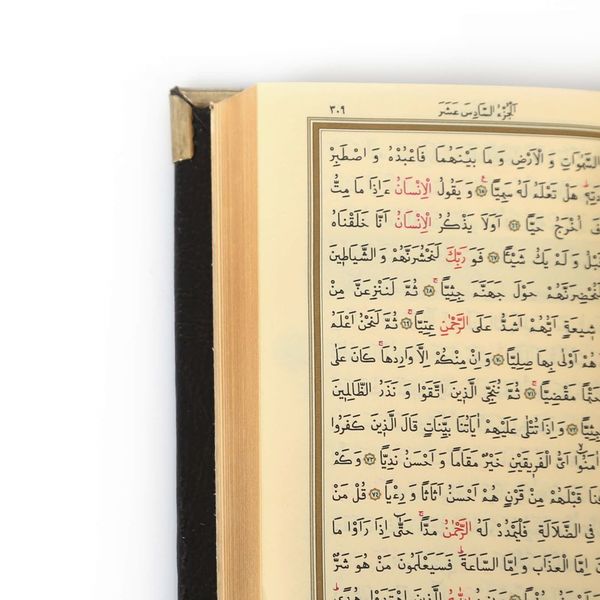 ٣٠٩ اَلْجُزْءُ السَّادِسَ عَشَرَ
السَّمٰوَاتِ وَ الْاَرْضِ وَ مَا بَيْنَهُمَا فَاعْبُدْهُ وَ اصْطَبِرْ
هَلْ تَعْلَمُ لَهُ سَمِيًّا ﴿٦٥﴾ وَ يَقُولُ الْاِنْسَانُ ءَاِذَا مَا مِتُّ
اُخْرَجُ حَيًّا ﴿٦٦﴾ اَوَلَا يَذْكُرُ الْاِنْسَانُ اَنَّا خَلَقْنَاهُ
وَ لَمْ يَكُ شَيْئًا ﴿٦٧﴾ فَوَ رَبِّكَ لَنَحْشُرَنَّهُمْ وَ الشَّيَاطِينَ
لَنُحْضِرَنَّهُمْ حَوْلَ جَهَنَّمَ جِثِيًّا ﴿٦٨﴾ ثُمَّ لَنَنْزِعَنَّ مِنْ
شِيعَةٍ اَيُّهُمْ اَشَدُّ عَلَى الرَّحْمٰنِ عِتِيًّا ﴿٦٩﴾ ثُمَّ لَنَحْنُ اَعْلَمُ
هُمْ اَوْلٰى بِهَا صِلِيًّا ﴿٧٠﴾ وَ اِنْ مِنْكُمْ اِلَّا وَارِدُهَا كَانَ عَلٰى
حَتْمًا مَقْضِيًّا ﴿٧١﴾ ثُمَّ نُنَجِّي الَّذِينَ اتَّقَوْا وَ نَذَرُ الظَّالِمِينَ
جِثِيًّا ﴿٧٢﴾ وَ اِذَا تُتْلٰى عَلَيْهِمْ اٰيَاتُنَا بَيِّنَاتٍ قَالَ الَّذِينَ كَفَرُوا
اٰمَنُوا اَيُّ الْفَرِيقَيْنِ خَيْرٌ مَقَامًا وَ اَحْسَنُ نَدِيًّا ﴿٧٣﴾ وَ كَمْ
قَبْلَهُمْ مِنْ قَرْنٍ هُمْ اَحْسَنُ اَثَاثًا وَ رِءْيًا ﴿٧٤﴾ قُلْ مَنْ
فِي الضَّلَالَةِ فَلْيَمْدُدْ لَهُ الرَّحْمٰنُ مَدًّا حَتّٰى اِذَا رَاَوْا مَا
اِمَّا الْعَذَابَ وَ اِمَّا السَّاعَةَ فَسَيَعْلَمُونَ مَنْ هُوَ شَرٌّ